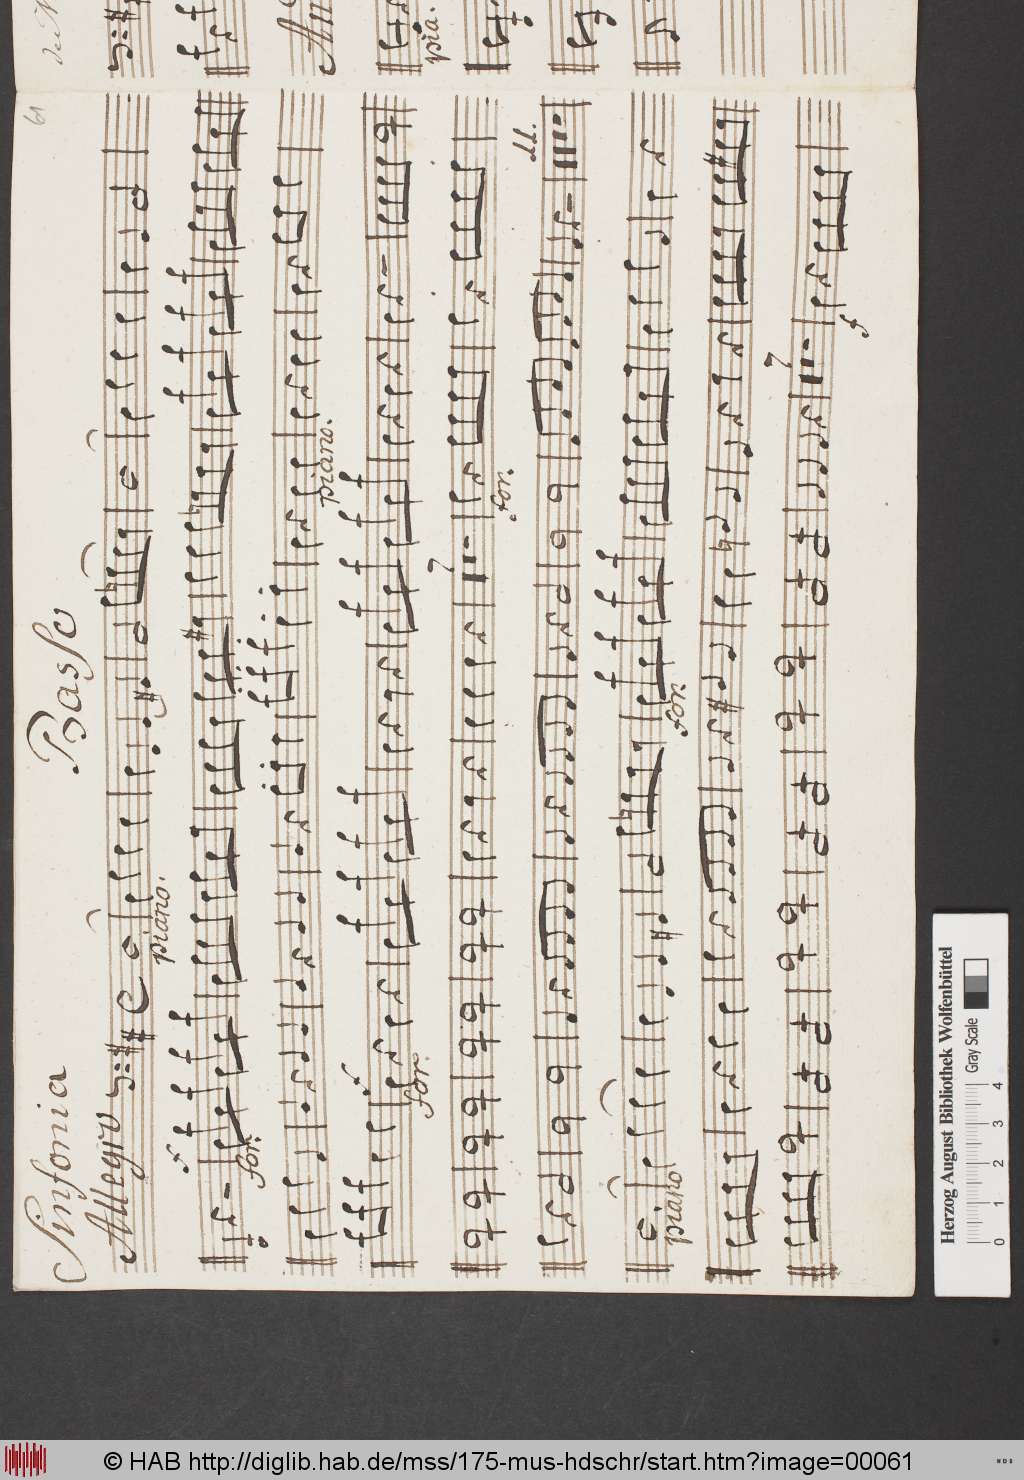 Sinfonia
Basso
61
Allegro
piano.
for:
piano.
for.
for.
11.
piano
for
f
pia.
Herzog August Bibliothek Wolfenbüttel
Gray Scale
0 1 2 3 4
© HAB http://diglib.hab.de/mss/175-mus-hdschr/start.htm?image=00061